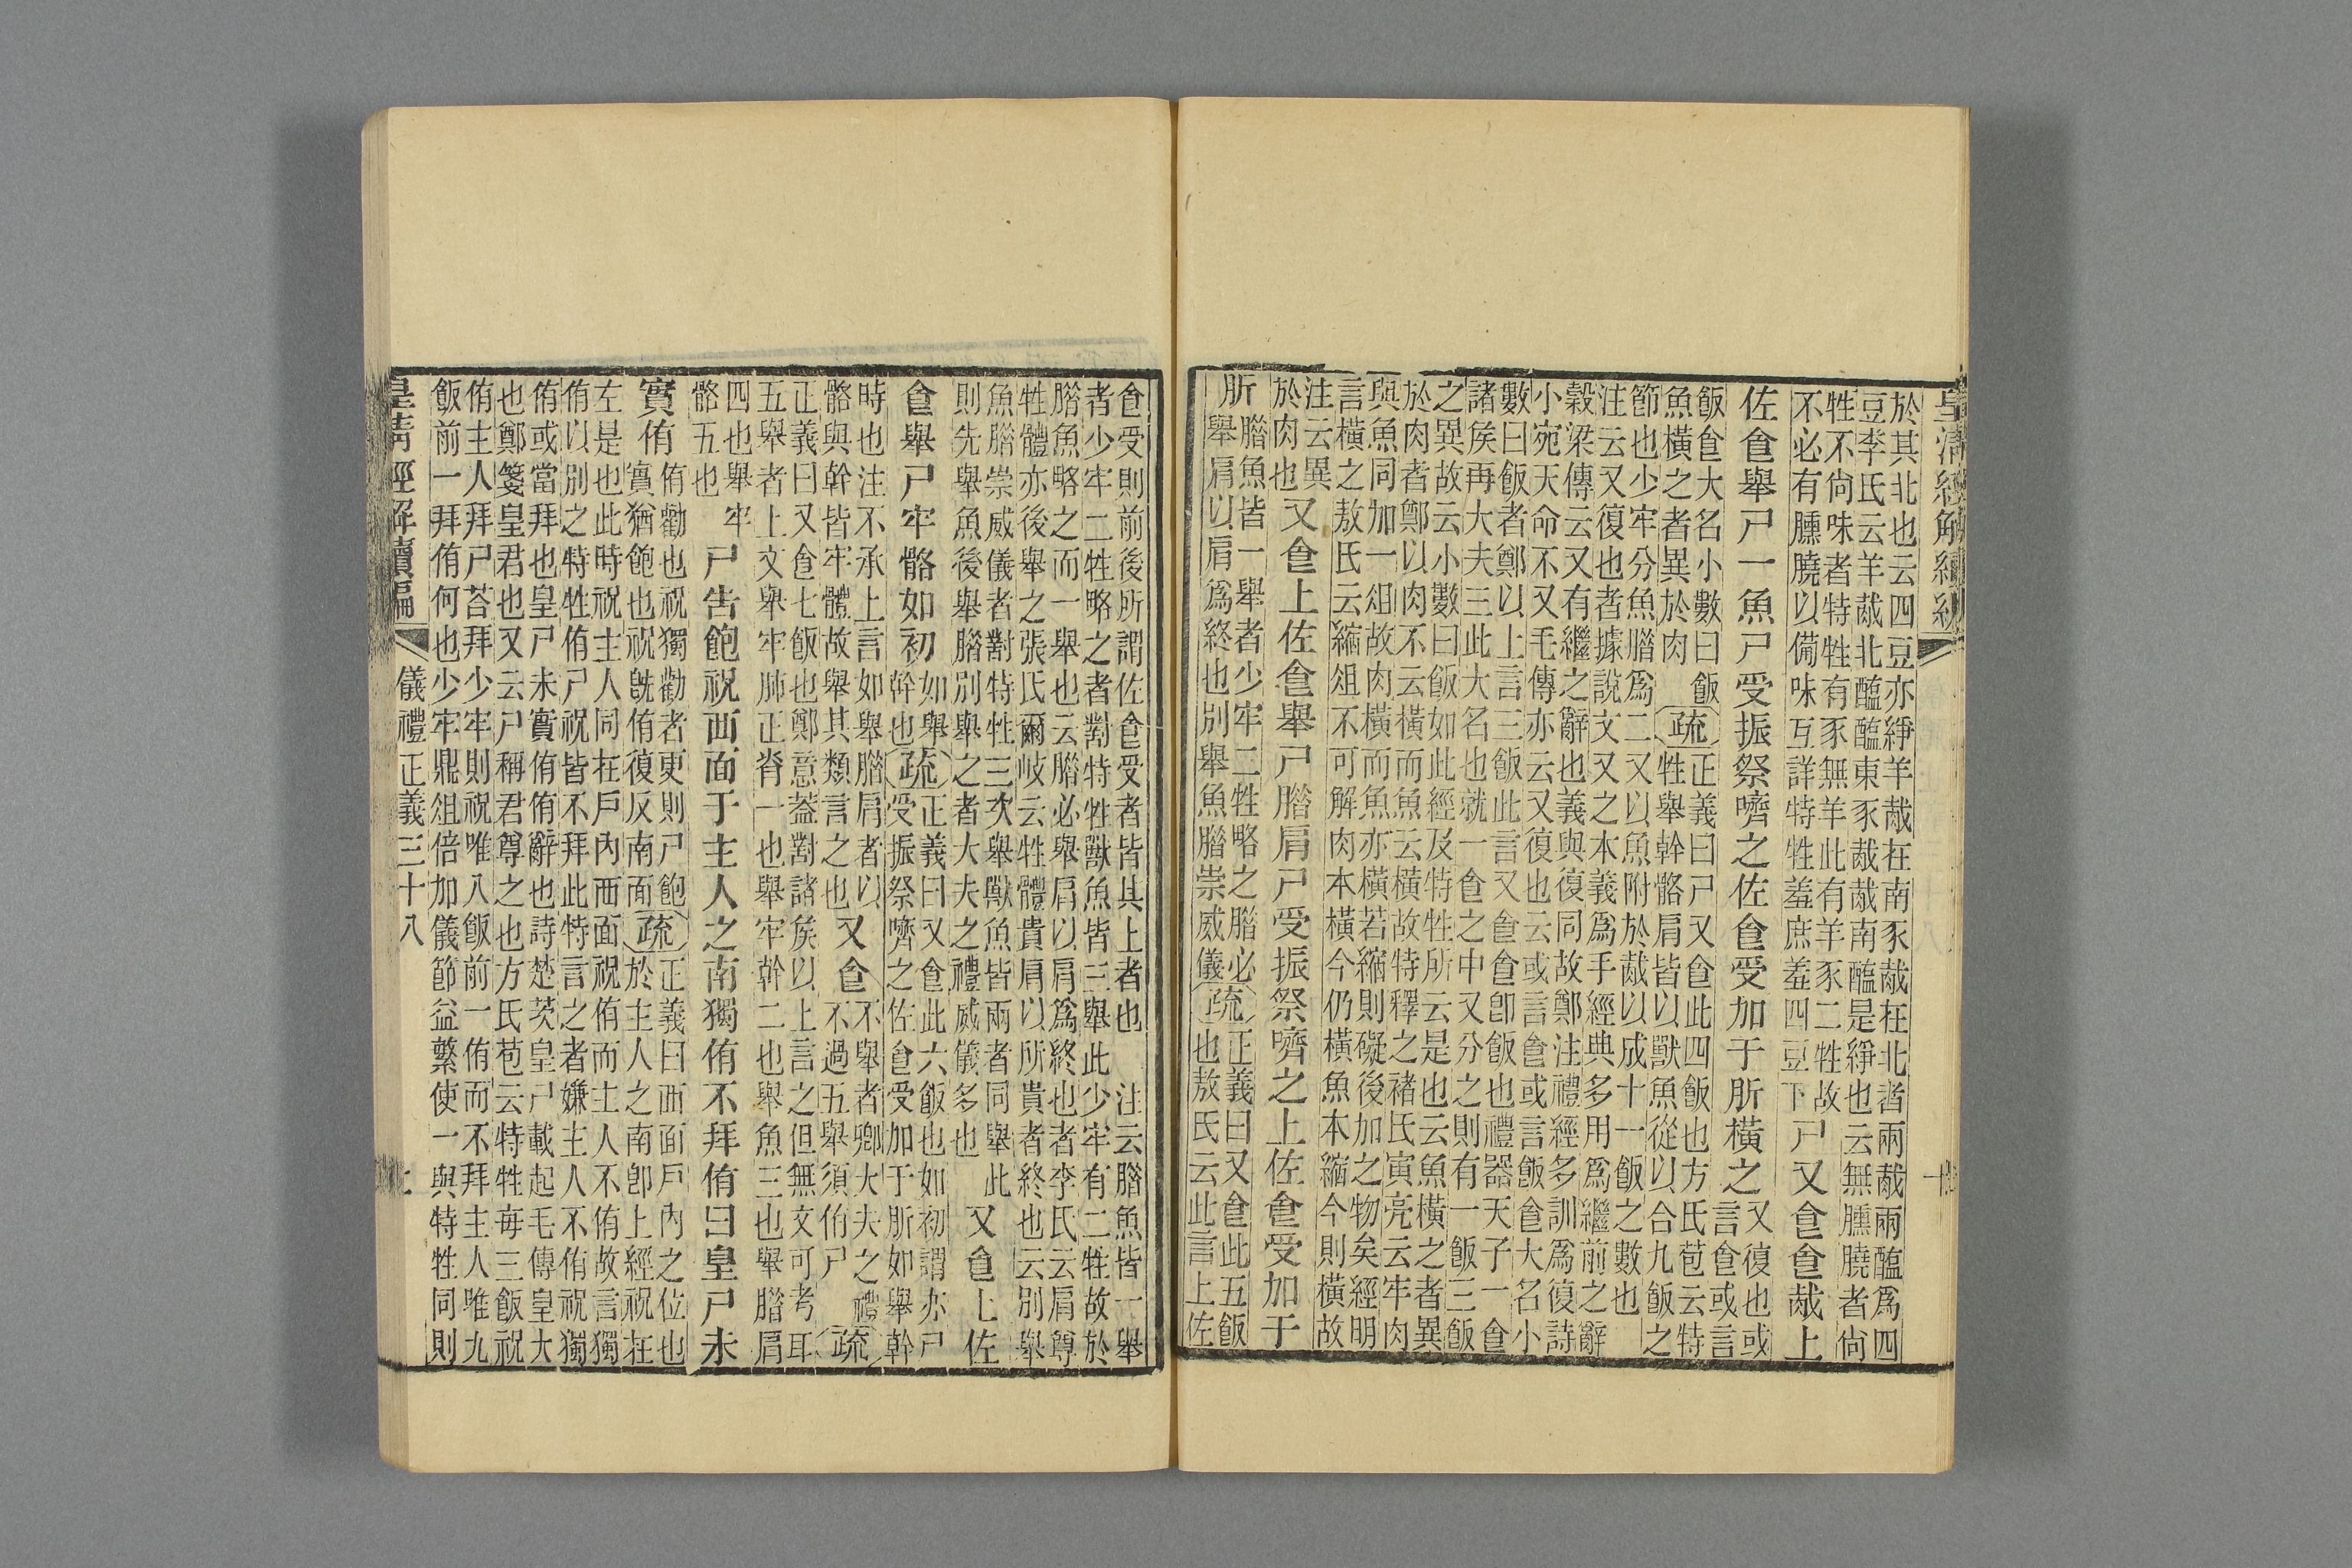 皇清經解續編
於其北也云四豆亦綪羊胾在南豕胾在北者兩胾兩醢為四
豆李氏云羊胾北醢醢東豕胾胾南醢是綪也云無臐膮者尙
牲不尙味者特牲有豕無羊此有羊豕二牲故
不必有臐膮以備味互詳特牲羞庶羞四豆下尸又食食胾上
佐食舉尸一魚尸受振祭嚌之佐食受加于肵橫之又復也或
言食或言
飯食大名小數曰飯疏正義曰尸又食此四飯也方氏苞云特
魚橫之者異於肉疏牲舉幹骼肩皆以獸魚從以合九飯之
節也少牢分魚腊為二又以魚附於胾以成十一飯之數也
注云又復也者據說文又之本義為手經典多用為繼前之辭
穀梁傳云又有繼之辭也義與復同故鄭注禮經多訓為復詩
小宛天命不又毛傳亦云又復也云或言食或言飯食大名小
數曰飯者鄭以上言三飯此言又食食卽飯也禮器天子一食
諸矦再大夫三此大名也就一食之中又分之則有一飯三飯
之異故云小數曰飯如此經及特牲所云是也云魚橫之者異
於肉者鄭以肉不云橫而魚云橫故特釋之褚氏寅亮云牢肉
與魚同加一俎故肉橫而魚亦橫若縮則礙後加之物矣經明
言橫之敖氏云縮俎不可解肉本橫今仍橫魚本縮今則橫故
注云異
於肉也又食上佐食舉尸腊肩尸受振祭嚌之上佐食受加于
肵腊魚皆一舉者少牢二牲略之腊必疏正義曰又食此五飯
舉肩以肩為終也別舉魚腊崇威儀疏也敖氏云此言上佐
食受則前後所謂佐食受者皆其上者也注云腊魚皆一舉
者少牢二牲略之者對特牲獸魚皆三舉此少牢有二牲故於
腊魚略之而一舉也云腊必舉肩以肩為終也者李氏云肩尊
牲體亦後舉之張氏爾岐云牲體貴肩以所貴者終也云別舉
魚腊崇威儀者對特牲三次舉獸魚皆兩者同舉此
則先舉魚後舉腊別舉之者大夫之禮威儀多也又食上佐
食舉尸牢骼如初如舉疏正義曰又食此六飯也如初謂亦尸
幹也疏受振祭嚌之佐食受加于肵如舉幹
時也注不承上言如舉腊肩者以又食不舉者卿大夫之禮疏
骼與幹皆牢體故舉其類言之也又食不過五舉須侑尸疏
正義曰又食七飯也鄭意葢對諸矦以上言之但無文可考耳
五舉者上文舉牢肺正脊一也舉牢幹二也舉魚三也舉腊肩
四也舉牢
骼五也尸告飽祝西面于主人之南獨侑不拜侑曰皇尸未
實侑侑勸也祝獨勸者更則尸飽疏正義曰西面戶內之位也
實猶飽也祝旣侑復反南面疏於主人之南卽上經祝在
左是也此時祝主人同在戶內西面祝侑而主人不侑故言獨
侑以別之特牲侑尸祝皆不拜此特言之者嫌主人不侑祝獨
侑或當拜也皇尸未實侑侑辭也詩楚茨皇尸載起毛傳皇大
也鄭箋皇君也又云尸稱君尊之也方氏苞云特牲每三飯祝
侑主人拜尸荅拜少牢則祝唯八飯前一侑而不拜主人唯九
飯前一拜侑何也少牢鼎俎倍加儀節益繁使一與特牲同則
皇清經解續編 儀禮正義三十八